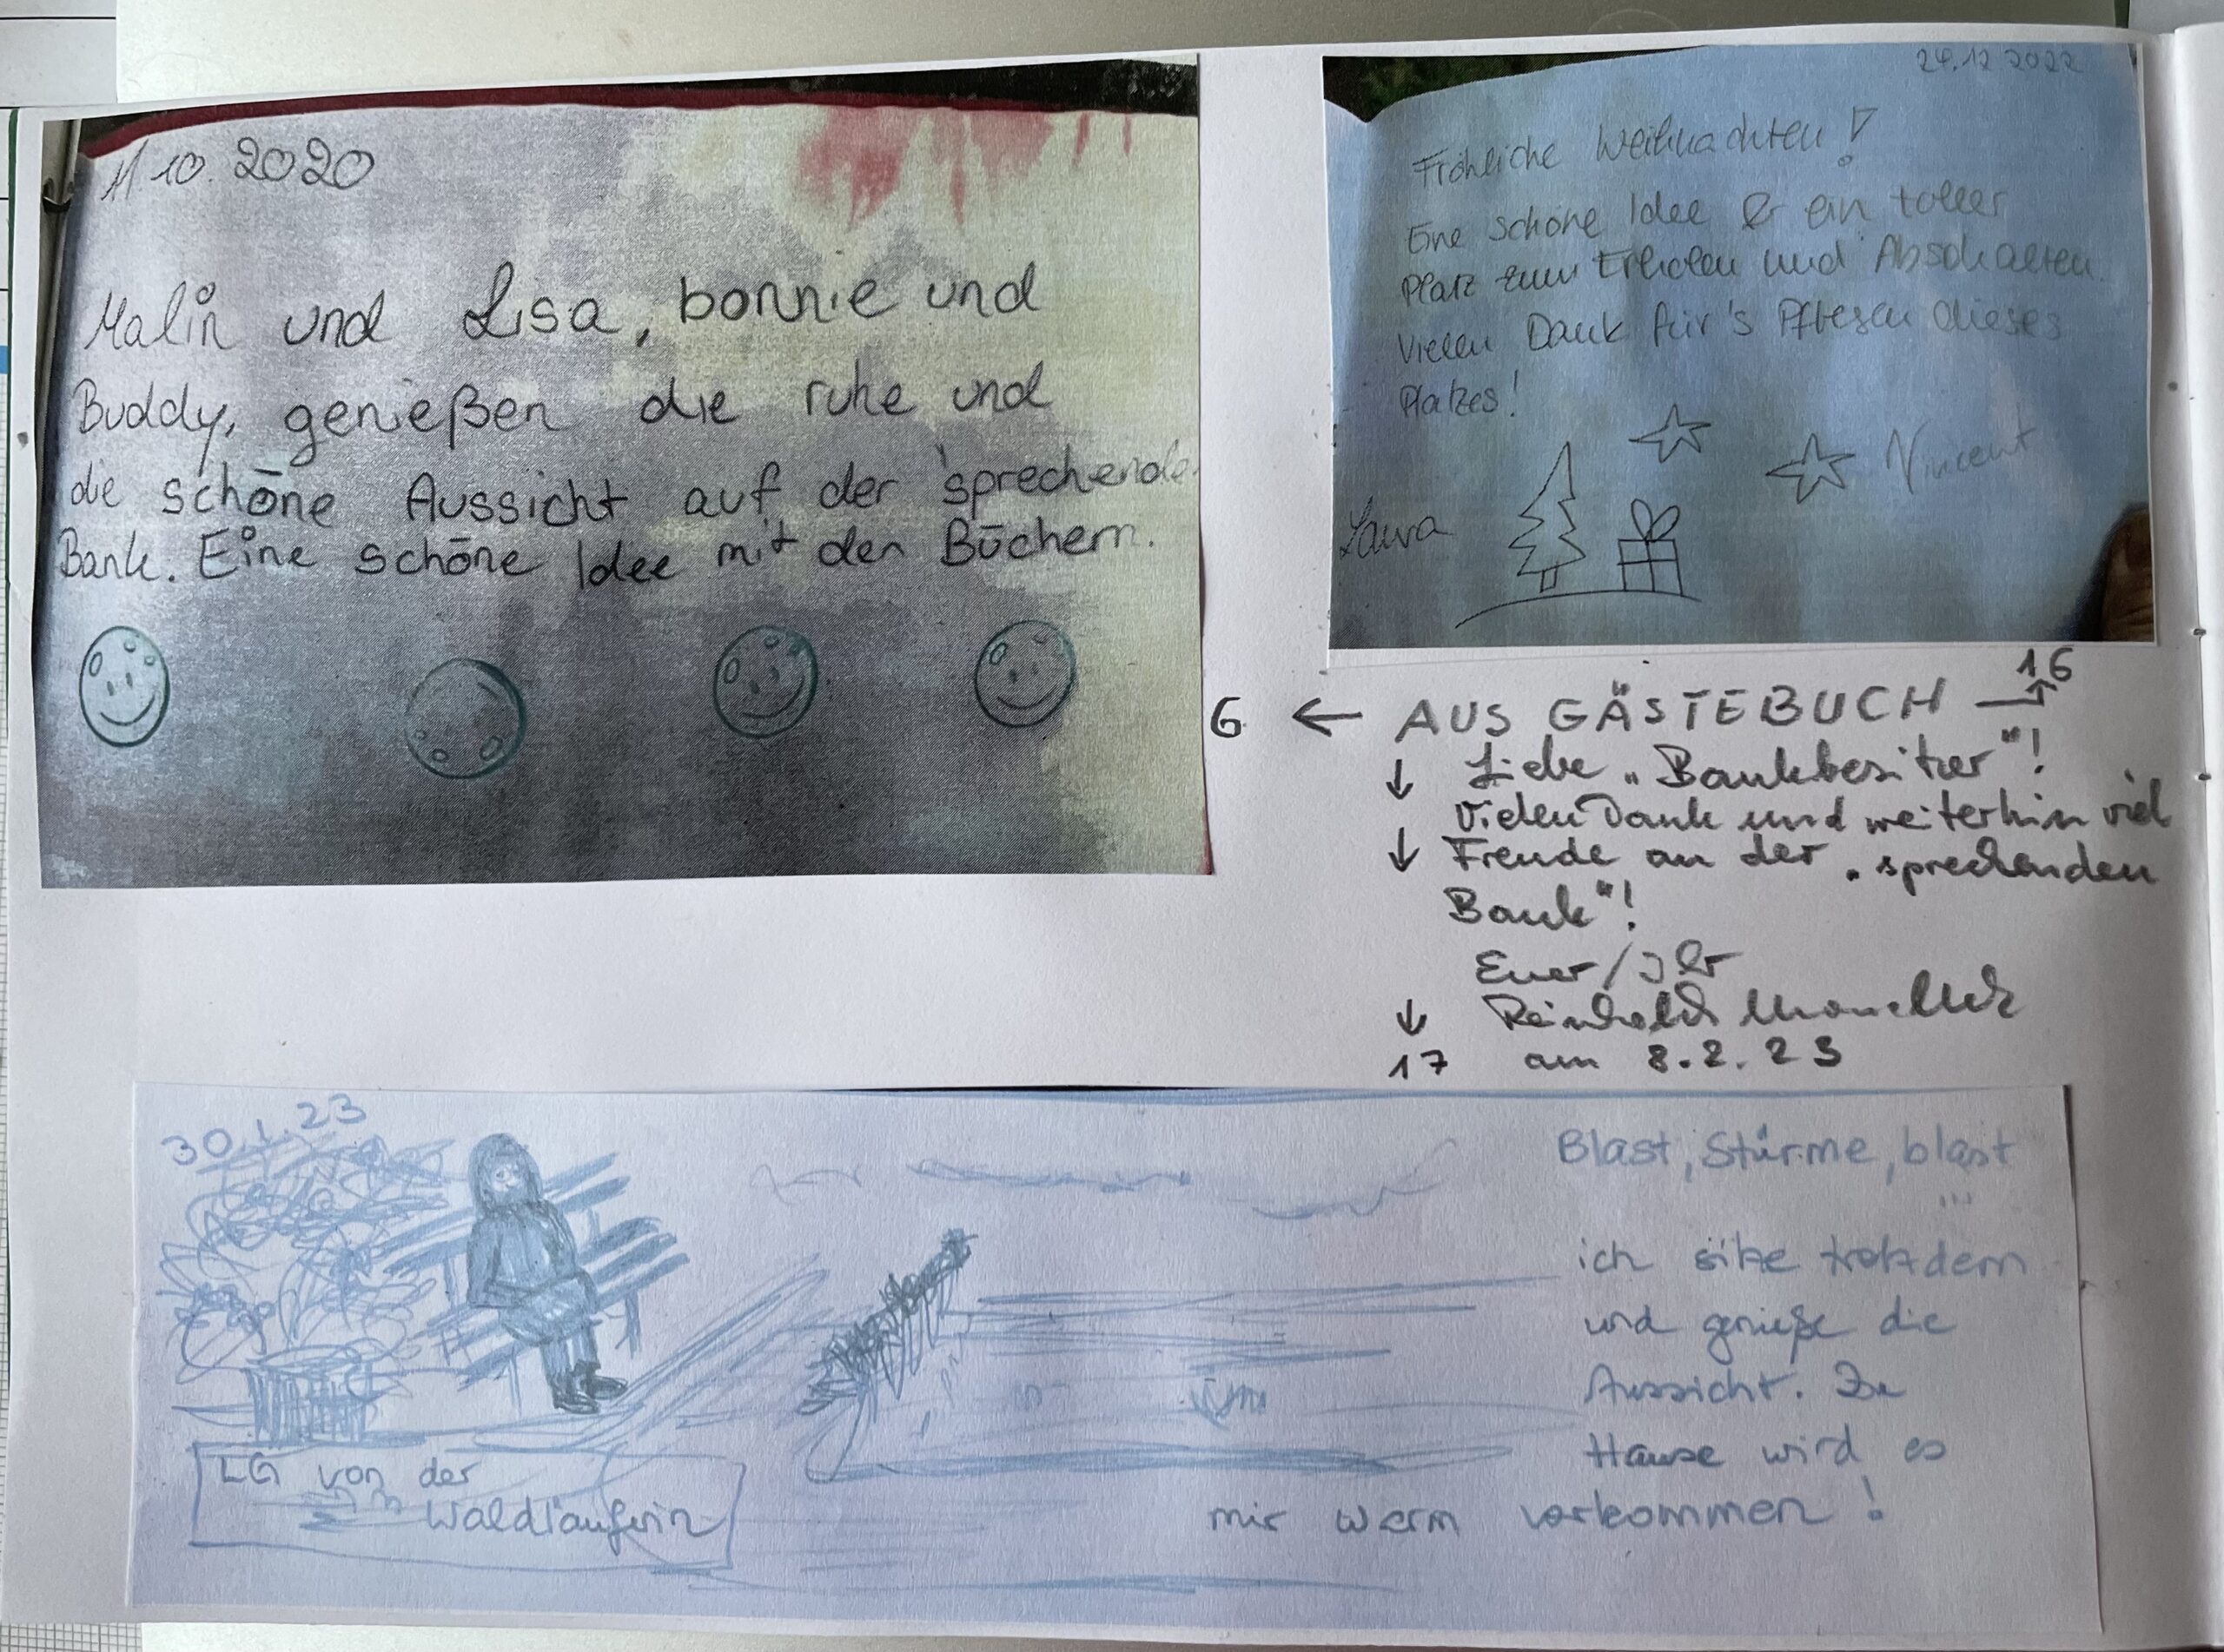 11.10.2020
Malin und Lisa, bonnie und
Buddy, genießen die ruhe und
die schöne Aussicht auf der sprechende
Bank. Eine schöne Idee mit den Büchern.
24.12 2022
Fröhliche Weihnachten!
Eine schöne Idee & ein toller
Platz zum Erholen und Abschalten.
Vielen Dank für's Pflegen dieses
Platzes!
Vincent
Laura
16
6 ← AUS GÄSTEBUCH →
↓ Liebe „Bankbesitzer"!
Vielen Dank und weiterhin viel
↓ Freude an der „sprechenden
Bank"!
Euer/Ihr
↓ Reinhold
17 am 8.2.23
30.1.23
Blast, Stürme, blast
...
ich sitze trotzdem
und genieße die
Aussicht. Zu
Hause wird es
mir warm vorkommen!
LG von der
Waldläuferin